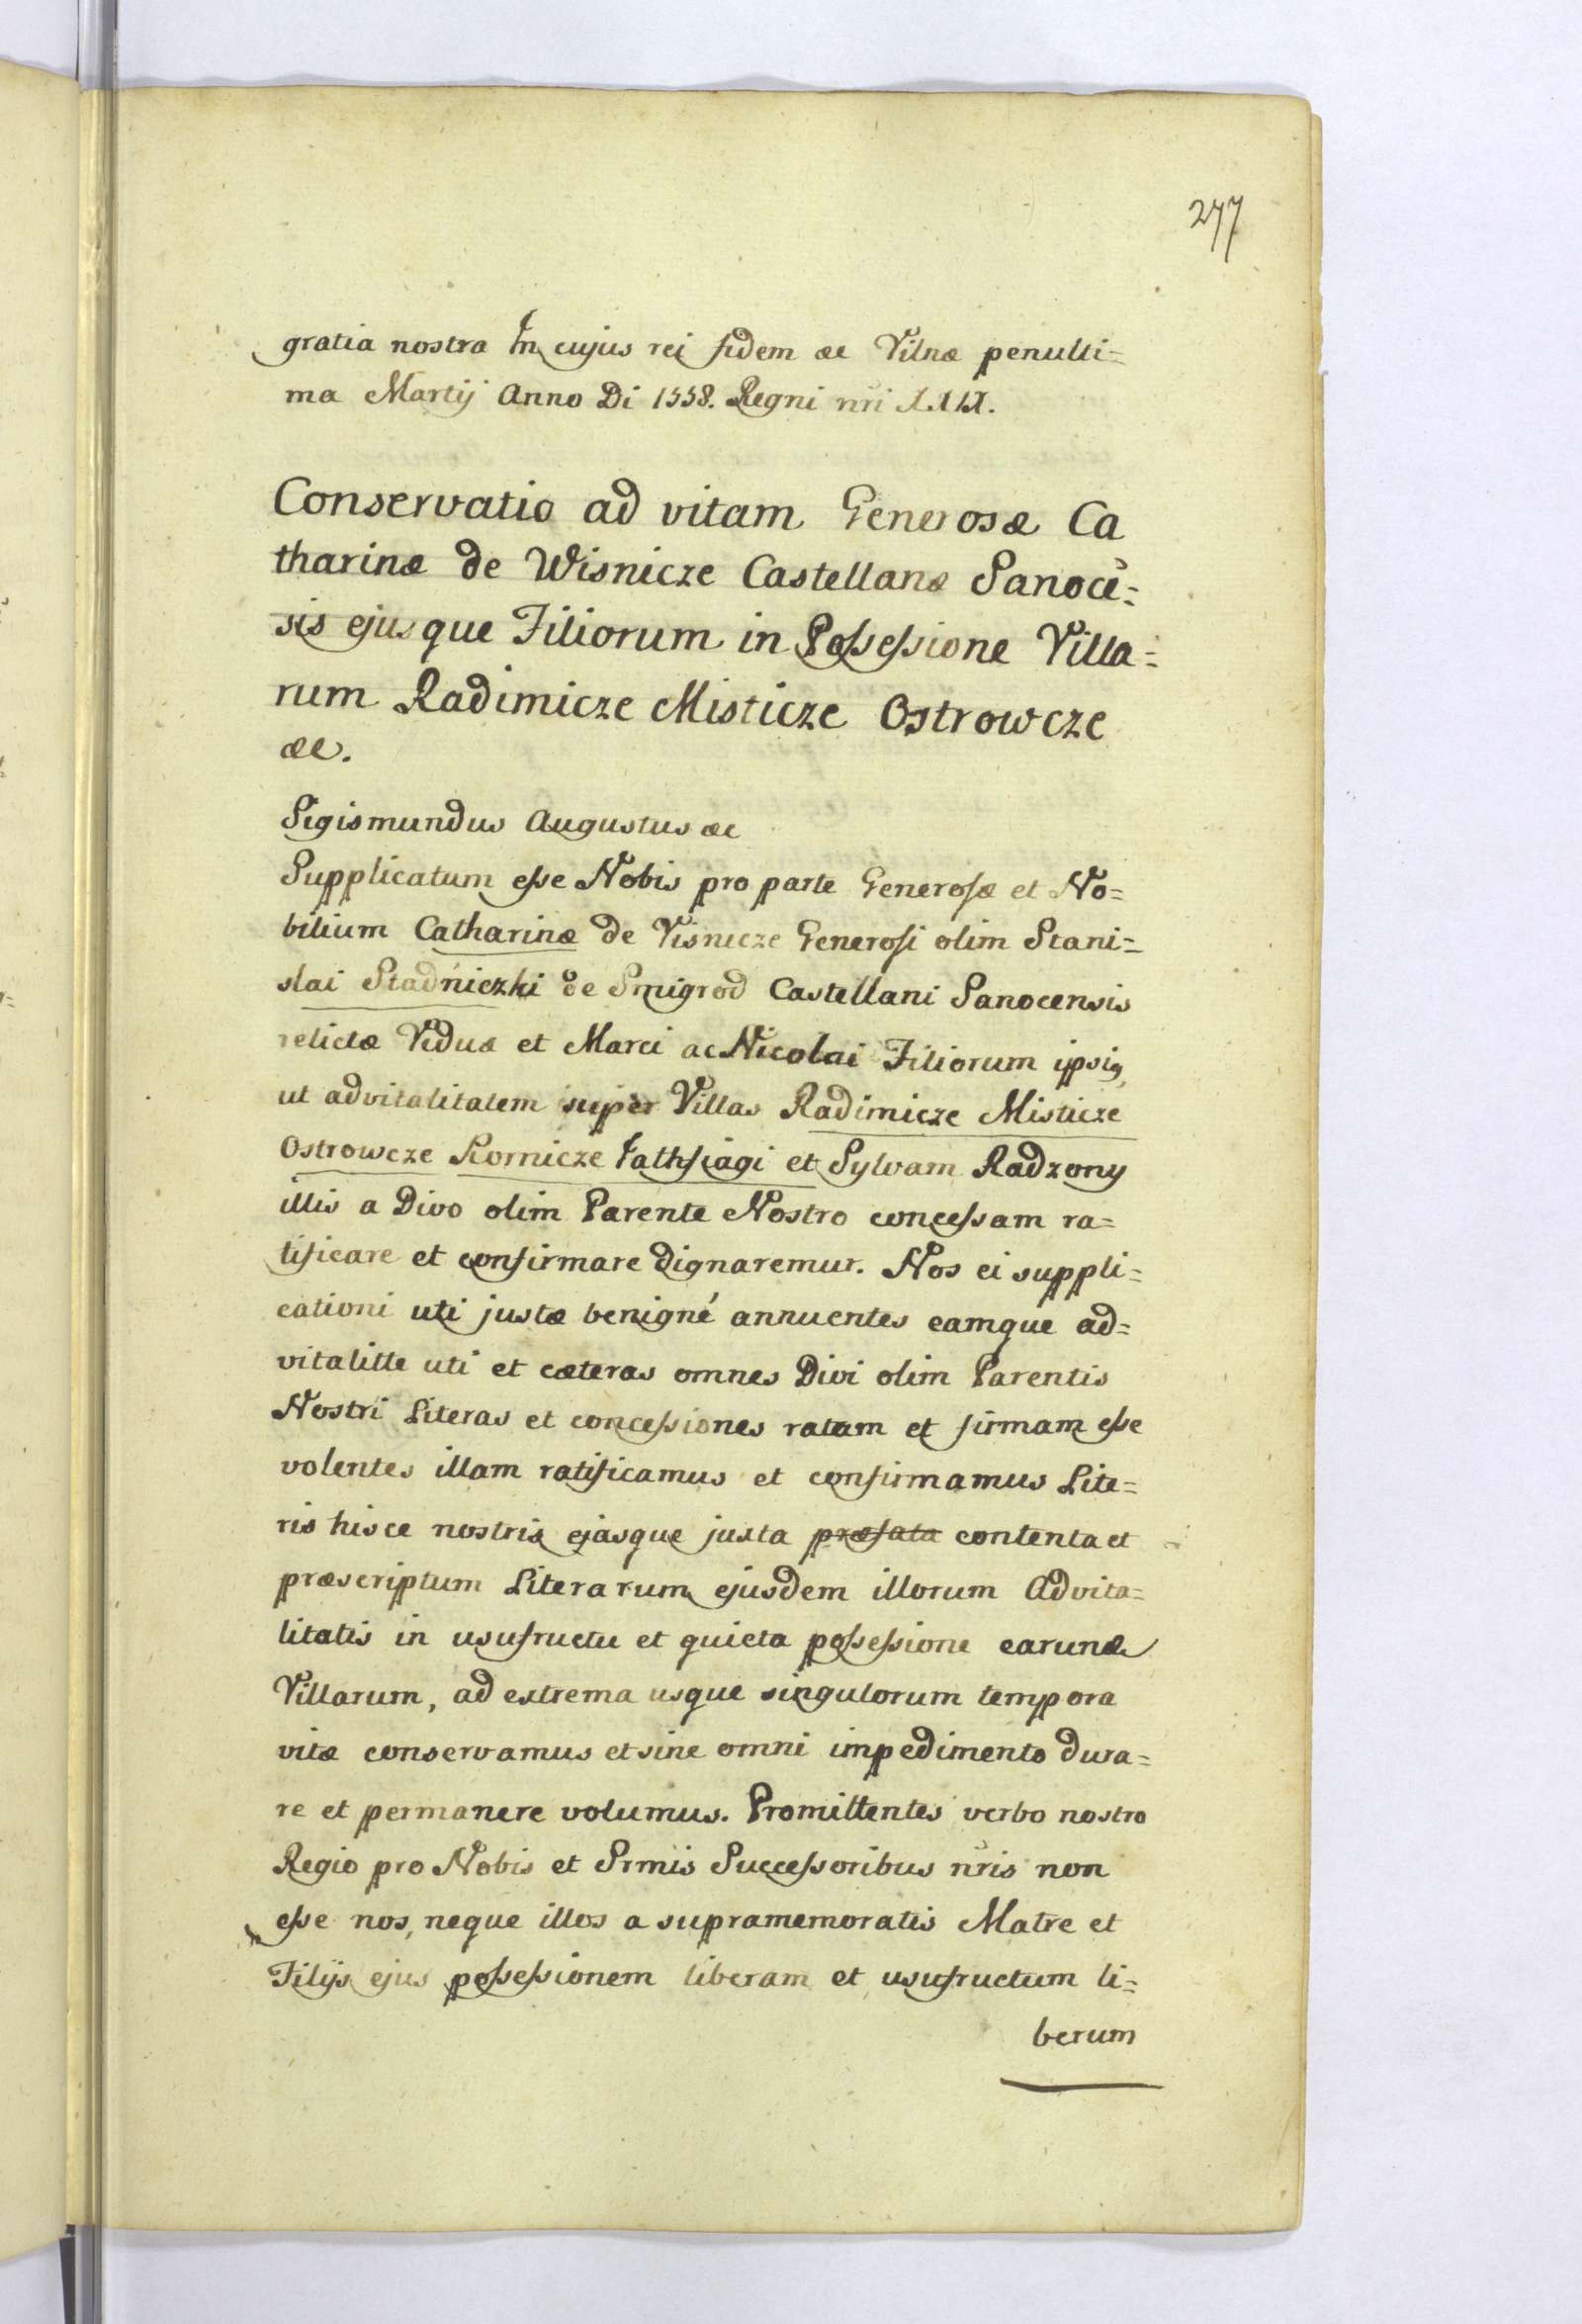 277
gratia nostra In cujus rei fidem ac Vilnæ penulti=
ma Martij Anno Di 1558. Regni nri XXIX.
Conservatio ad vitam Generosæ Ca
tharinæ de Wisnicze Castellanæ Sanocē=
sis ejusque Filiorum in Possessione Villa=
rum Radimicze Misticze Ostrowcze
æc.
Sigismundus Augustus æc
Supplicatum esse Nobis pro parte Generosæ et No=
bilium Catharinæ de Visnicze Generosi olim Stani=
slai Stadniczki de Smigrod Castellani Sanocensis
relictæ Viduæ et Marci ac Nicolai Filiorum ipsig,
ut advitalitatem super Villas Radimicze Misticze
Ostrowcze Kornicze Fathsiągi et Sylvam Radzony
illis a Divo olim Parente Nostro concessam ra=
tificare et confirmare dignaremur. Nos ei suppli=
cationi uti justæ benigné annuentes eamque ad=
vitalitte uti et cæteras omnes Divi olim Parentis
Nostri Literas et concessiones ratam et firmam esse
volentes illam ratificamus et confirmamus Lite=
ris hisce nostris ejasque juxta præfata contenta et
præscriptum Literarum ejusdem illorum Advita=
litatis in usufructu et quieta possessione earunde
Villarum, ad extrema usque singulorum tempora
vitæ conservamus et sine omni impedimento dura=
re et permanere volumus. Promittentes verbo nostro
Regio pro Nobis et Srmis Successoribus nris non
esse nos, neque illos a supramemoratis Matre et
Filijs ejus possessionem liberam et usufructum li=
berum